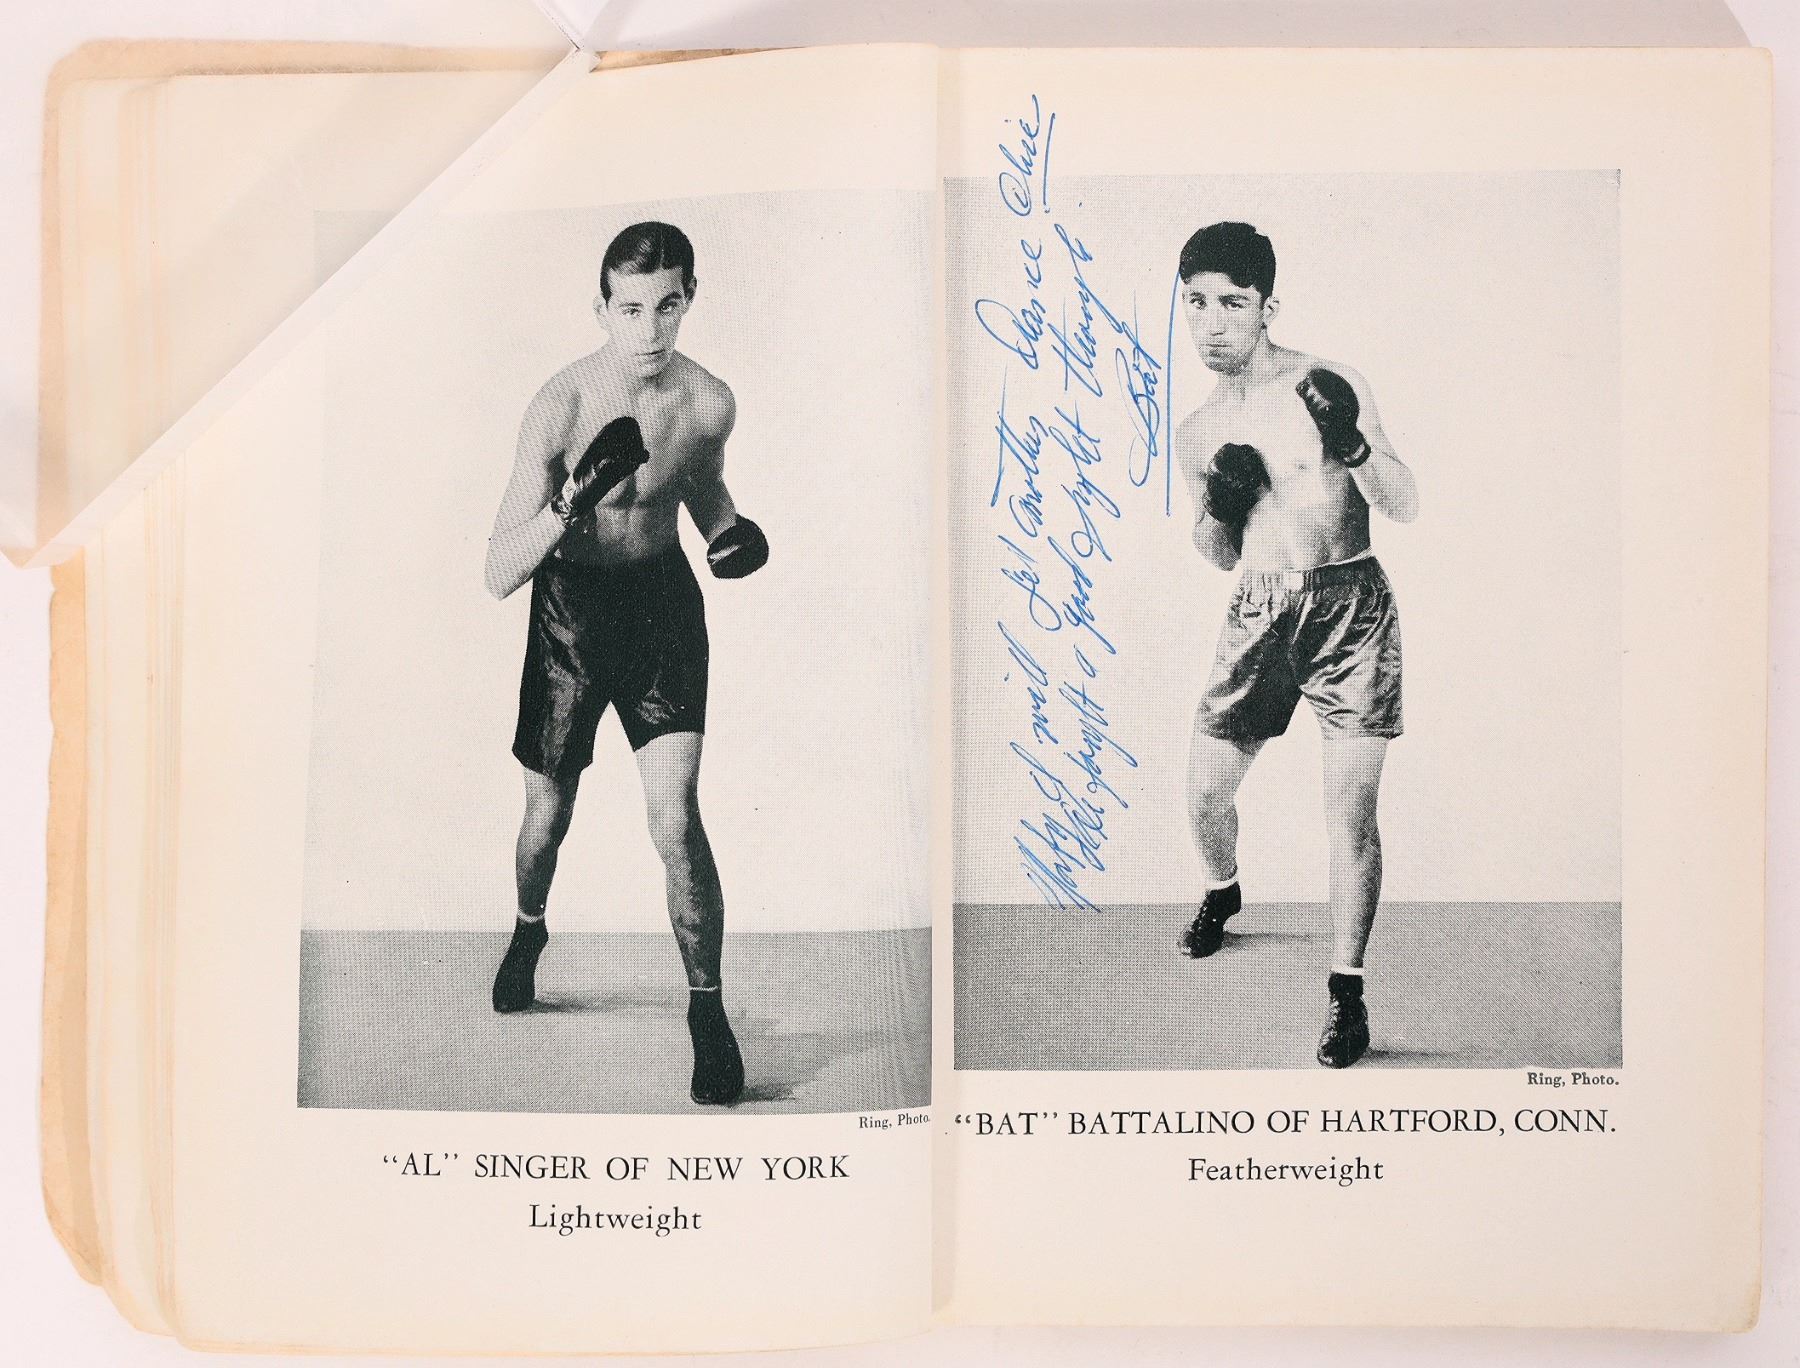 Ring, Photo.
"AL" SINGER OF NEW YORK
Lightweight
I will get another chance
a good fight though.
Bat
Ring, Photo.
"BAT" BATTALINO OF HARTFORD, CONN.
Featherweight